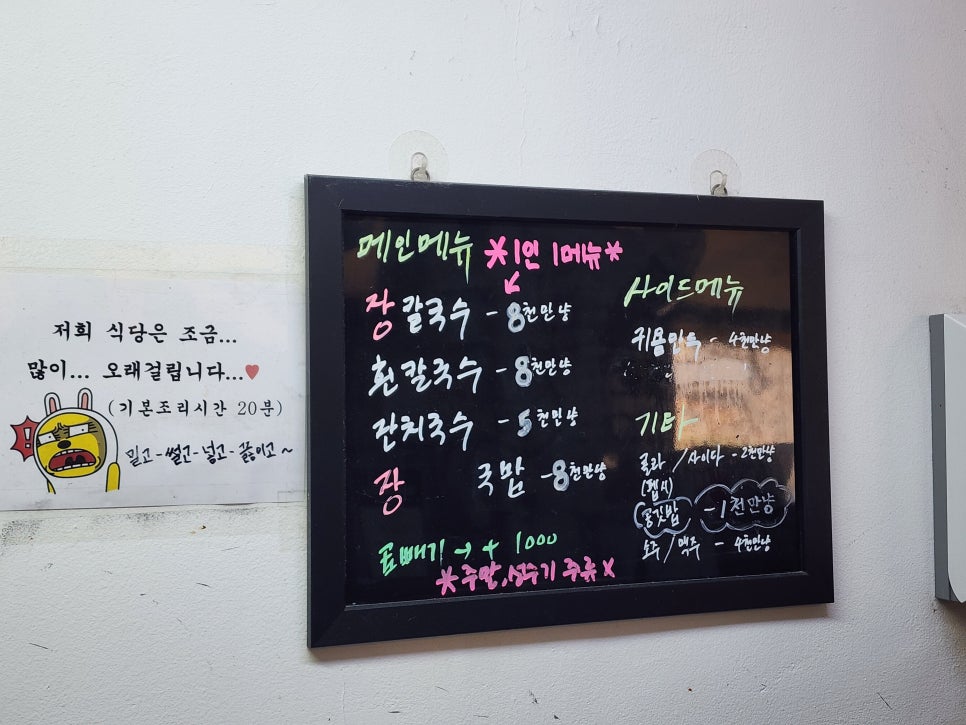 저희 식당은 조금...
많이... 오래걸립니다...♥
(기본조리시간 20분)
밀고-썰고-넣고-끓이고~
메인메뉴 *1인 1메뉴*
장칼국수 - 8천만냥
흰칼국수 - 8천만냥
잔치국수 - 5천만냥
장 국밥 - 8천만냥
곱빼기 → + 1000
*주말, 성수기 주류 X
사이드메뉴
귀용만두 - 4천만냥
기타
콜라 / 사이다 - 2천만냥
(펩시)
공깃밥 - 1천만냥
소주 / 맥주 - 4천만냥